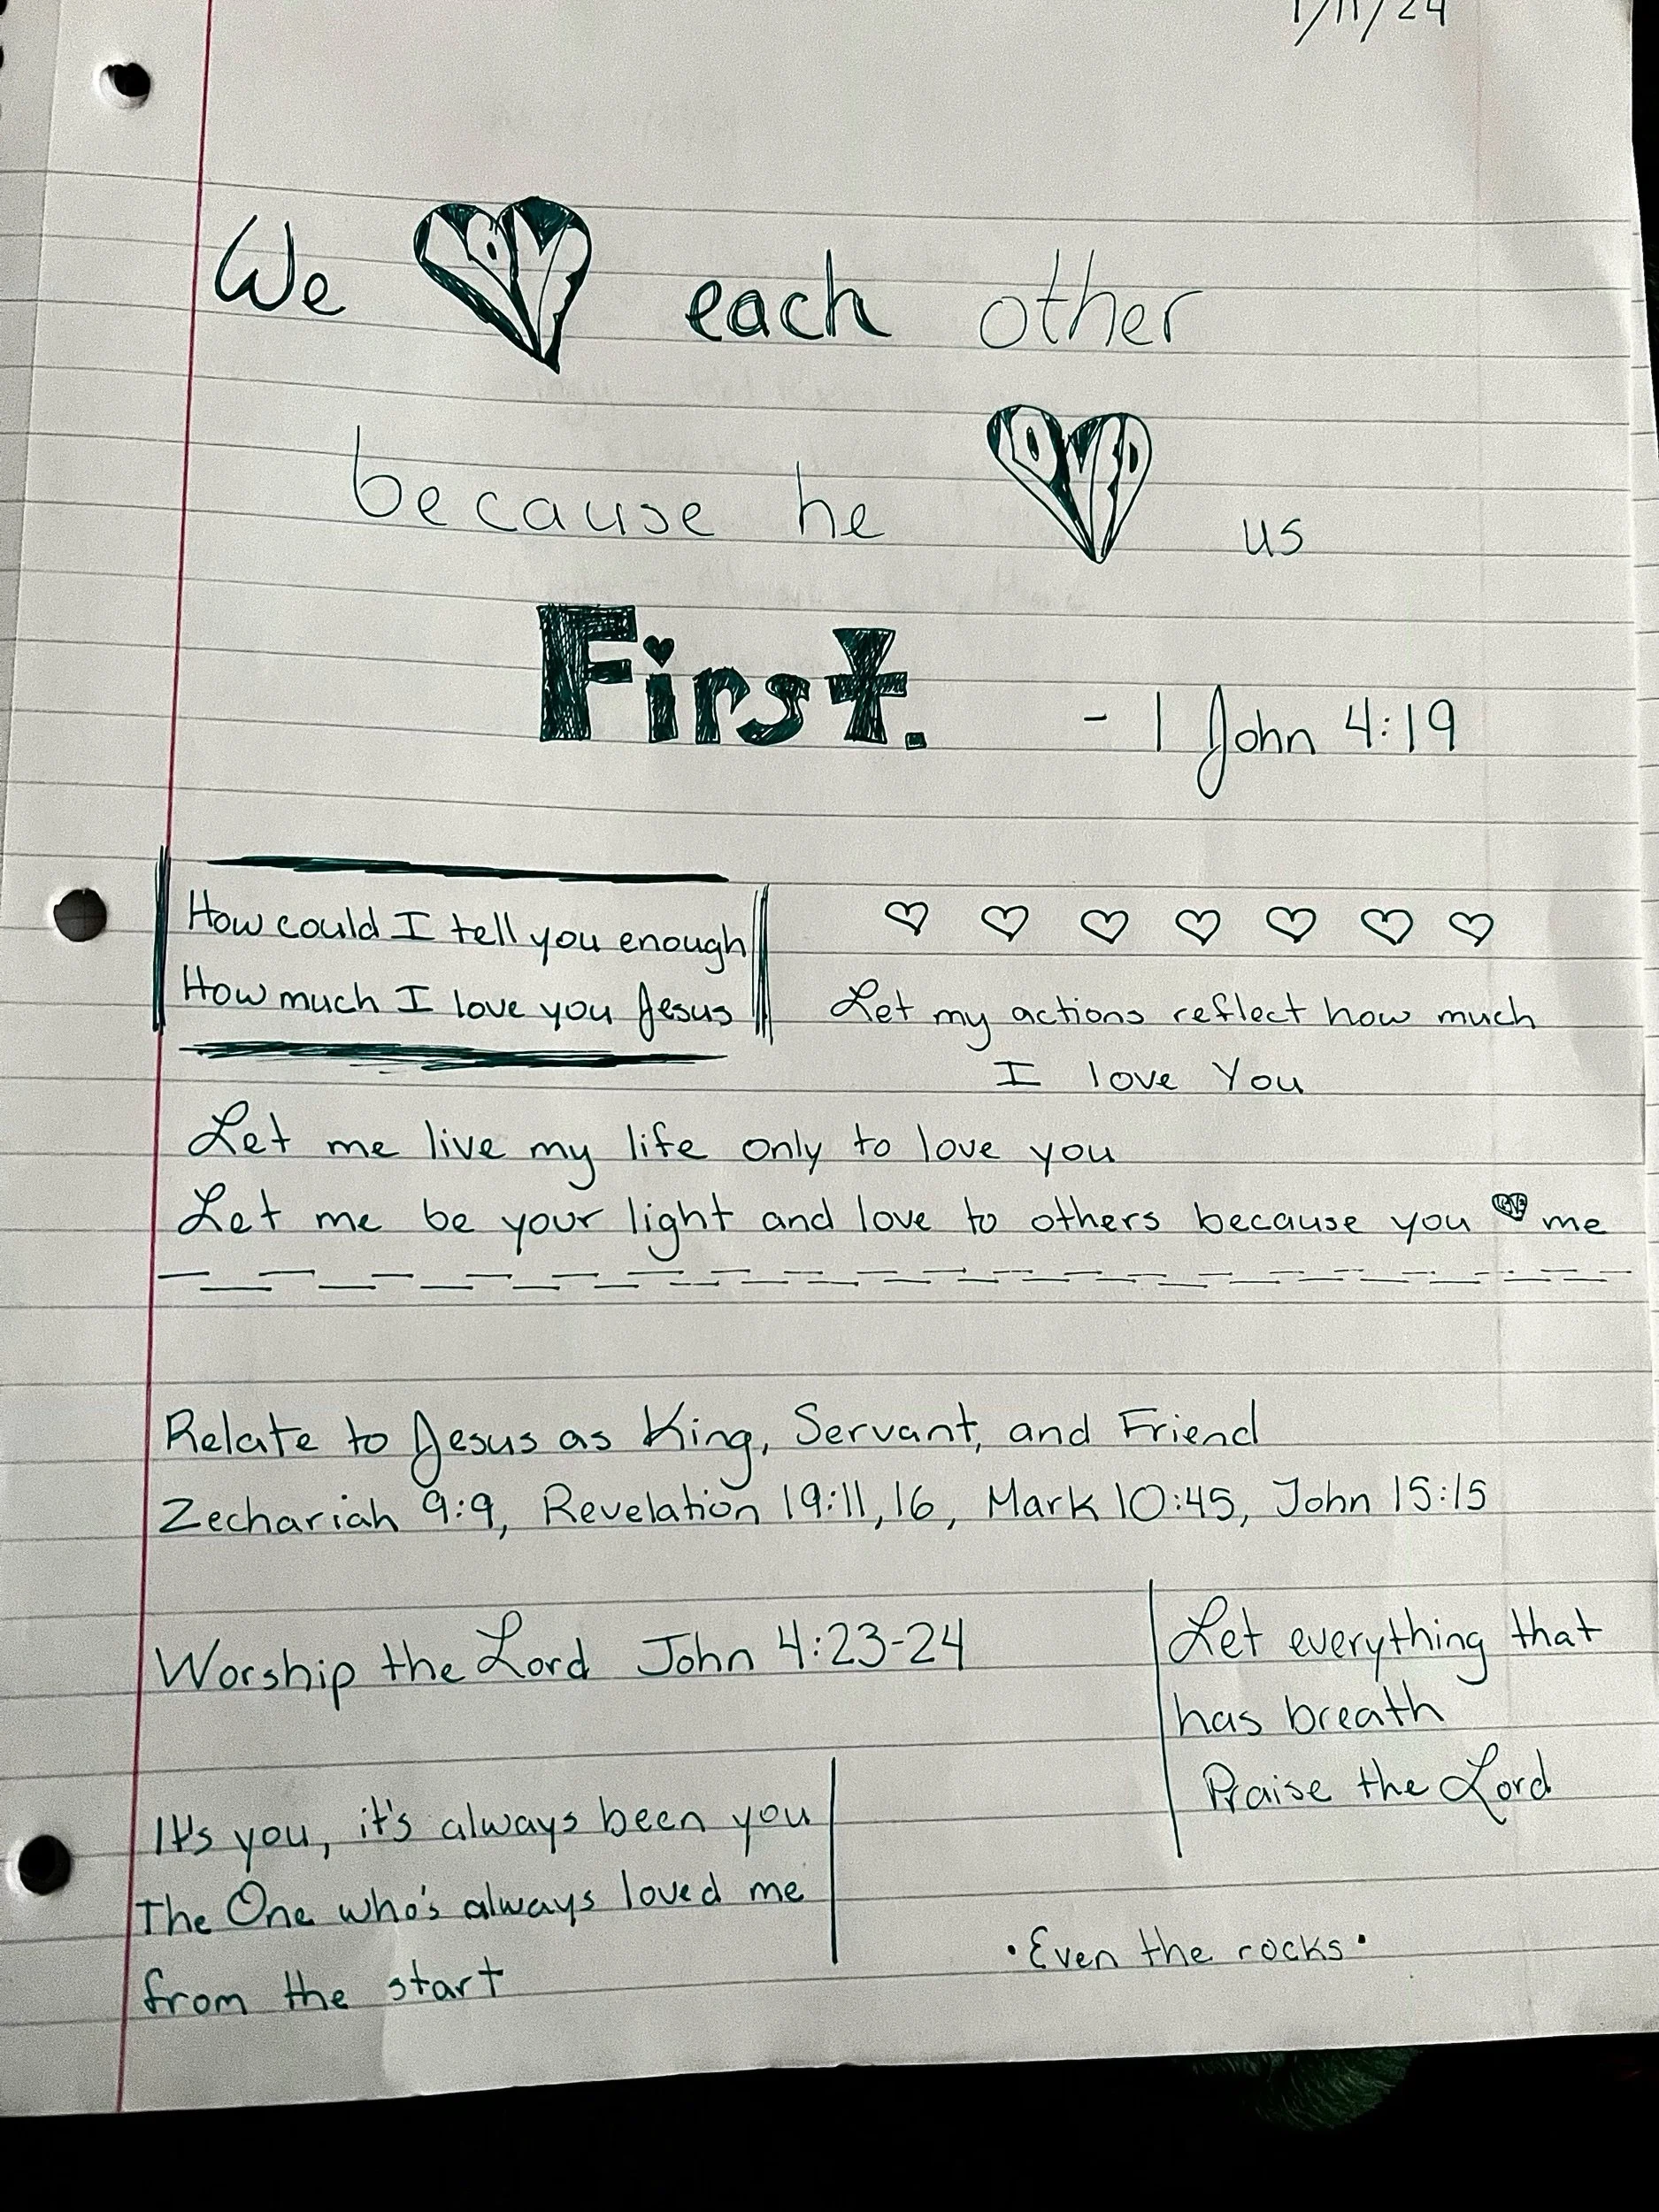 1/11/24
We LOVE each other
because he LOVED us
First. - 1 John 4:19
How could I tell you enough
How much I love you Jesus
Let my actions reflect how much
I love You
Let me live my life only to love you
Let me be your light and love to others because you LOVE me
Relate to Jesus as King, Servant, and Friend
Zechariah 9:9, Revelation 19:11,16, Mark 10:45, John 15:15
Worship the Lord John 4:23-24
Let everything that
has breath
Praise the Lord
It's you, it's always been you
The One who's always loved me
from the start
•Even the rocks•